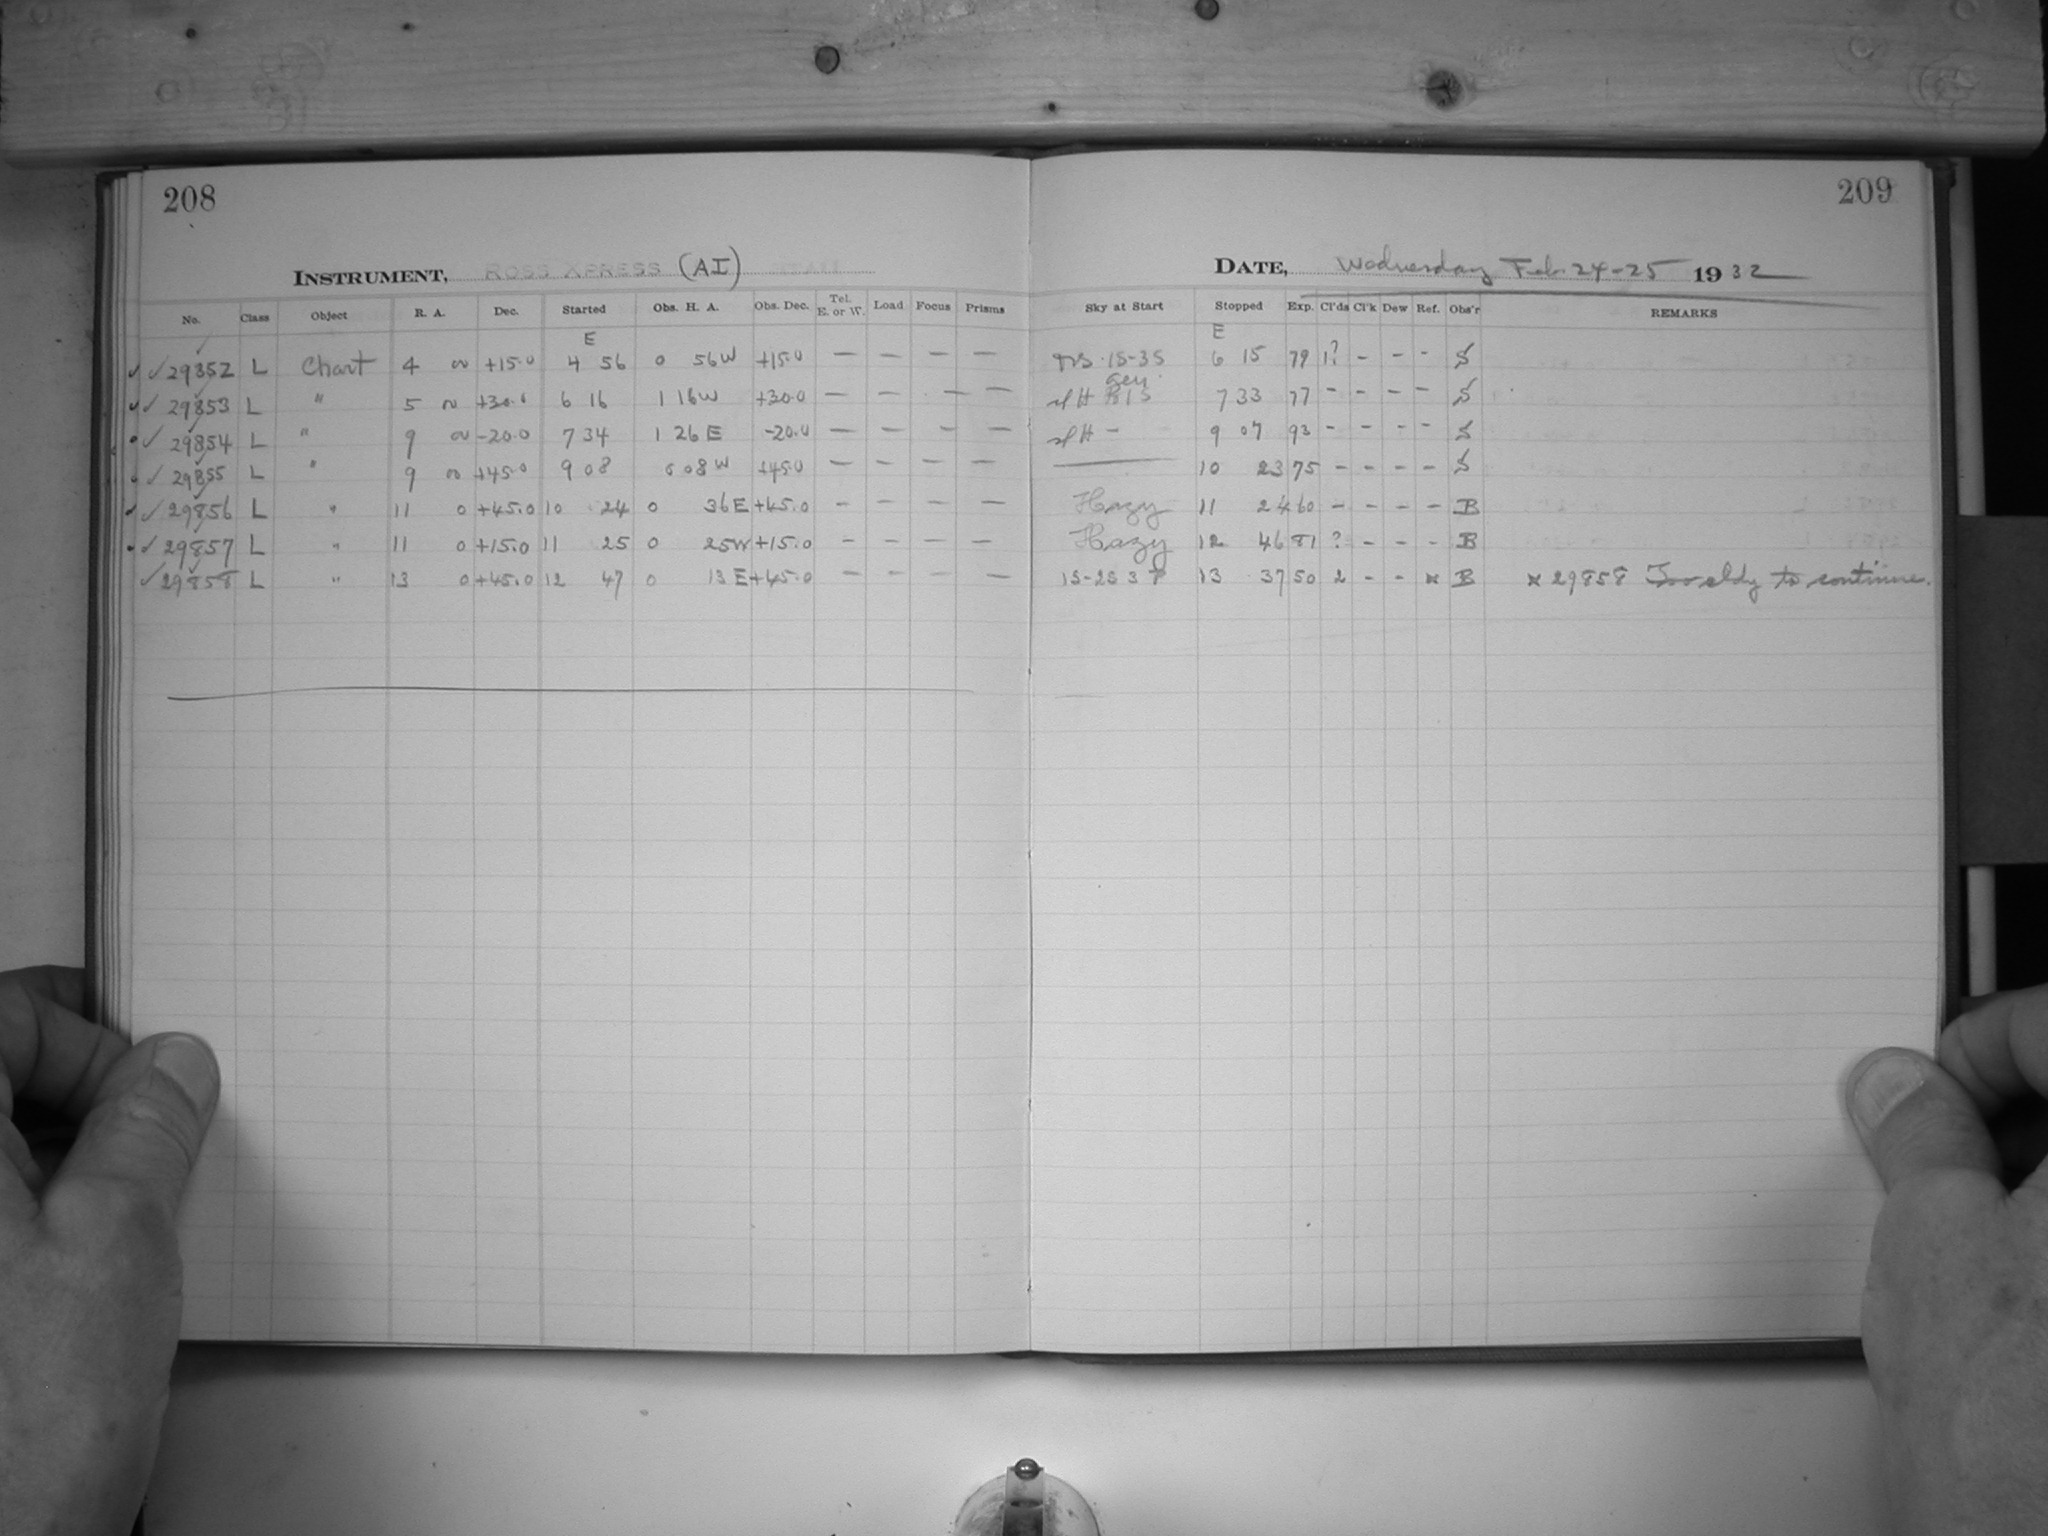 208
209
INSTRUMENT, ROSS XPRESS (AI)
DATE, Wednesday Feb. 24-25 1932
No. Class Object R. A. Dec. Started Obs. H. A. Obs. Dec. Tel. E. or W. Load Focus Prisms Sky at Start Stopped Exp. Cl'ds Cl'k Dew Ref. Obs'r REMARKS
E E
✓ ✓ 29852 L Chart 4 0 +15.0 4 56 0 56W +15.0 — — — — 1S-3S 6 15 79 1? - - - S
✓ ✓ 29853 L " 5 0 +30.0 6 16 1 16W +30.0 — — — — slH 7 33 77 - - - - S
✓ 29854 L " 9 0 -20.0 7 34 1 26E -20.0 — — — — slH - 9 07 93 - - - - S
✓ 29855 L " 9 0 +45.0 9 08 0 08W +45.0 — — — — —— 10 23 75 - - - - S
✓ ✓ 29856 L " 11 0 +45.0 10 24 0 36E +45.0 - — — — Hazy 11 24 60 - - - - B
✓ 29857 L " 11 0 +15.0 11 25 0 25W +15.0 - — — — Hazy 12 46 81 ? - - - B
✓ 29858 L " 13 0 +45.0 12 47 0 13E +45.0 — — — — 1S-2S 3 P 13 37 50 2 - - x B x 29858 Too cldy to continue.